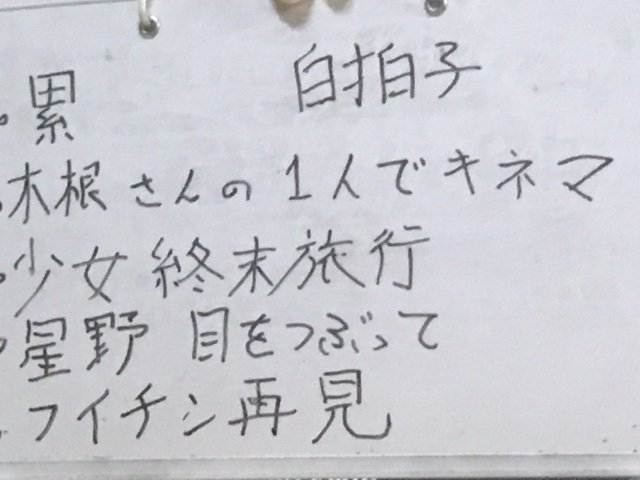 ・累 白拍子
・木根さんの1人でキネマ
・少女終末旅行
・星野 目をつぶって
・フイチン再見